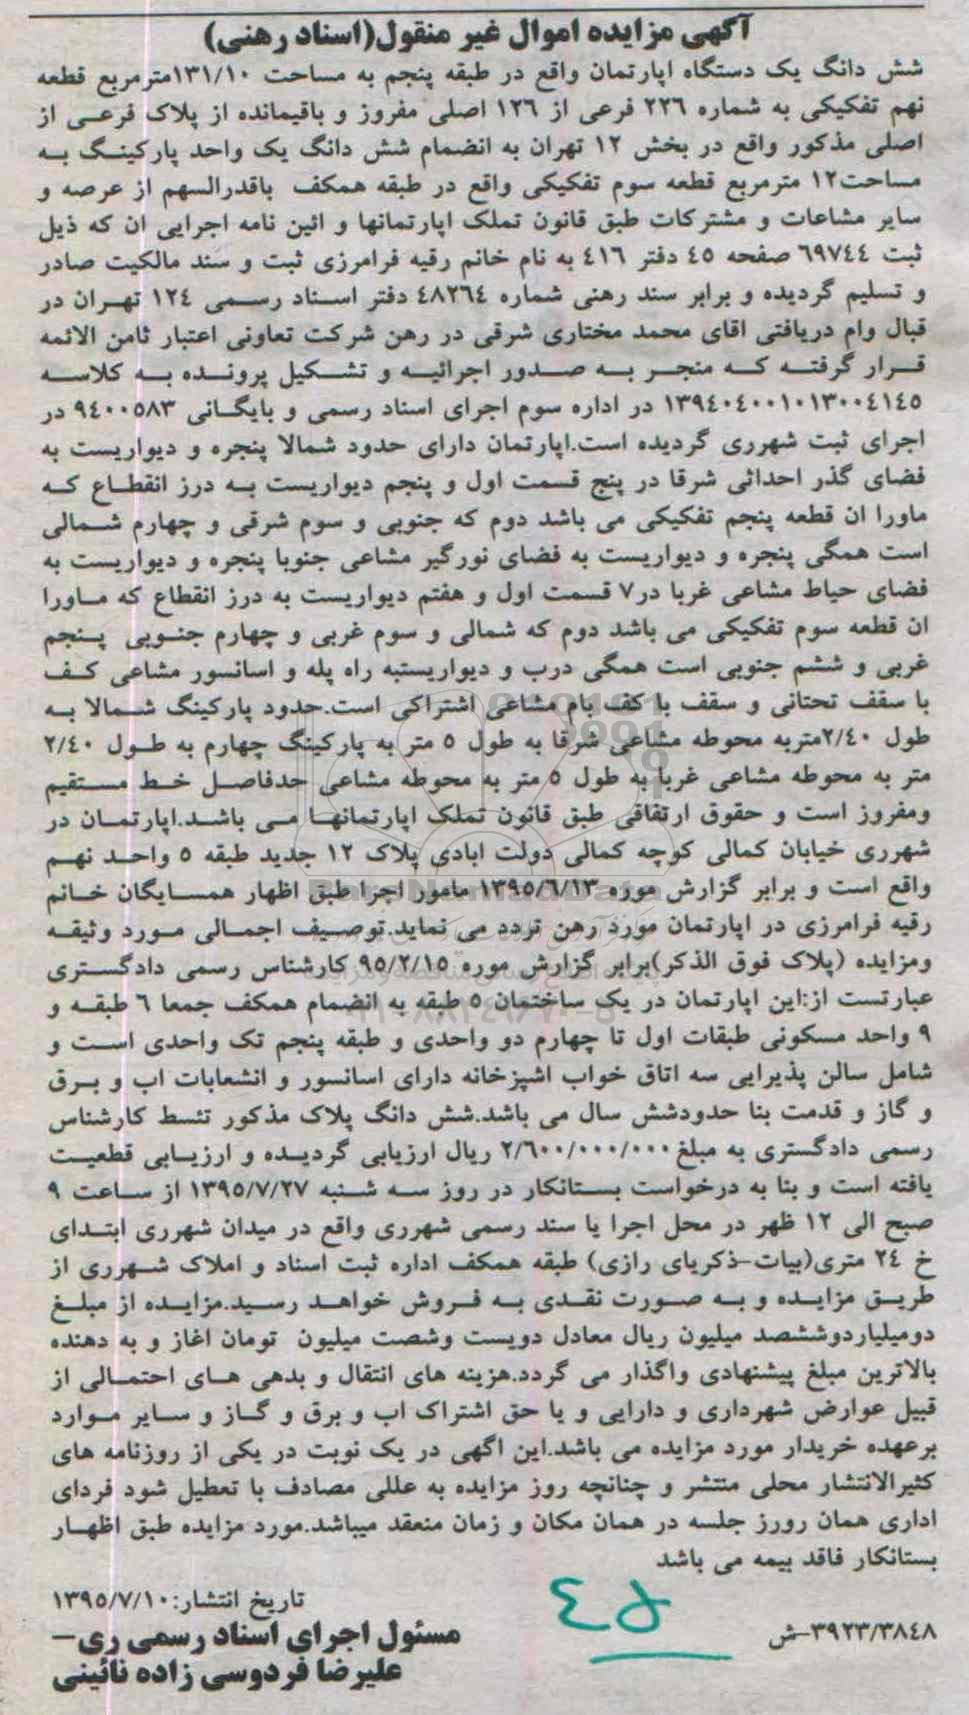 آگهی مزایده اموال غیر منقول(اسناد رهنی)
شش دانگ یک دستگاه اپارتمان واقع در طبقه پنجم به مساحت ۱۳۱/۱۰مترمربع قطعه
نهم تفکیکی به شماره ۲۲۶ فرعی از ۱۲۶ اصلی مفروز و باقیمانده از پلاک فرعی از
اصلی مذکور واقع در بخش ۱۲ تهران به انضمام شش دانگ یک واحد پارکینگ به
مساحت۱۲ مترمربع قطعه سوم تفکیکی واقع در طبقه همکف باقدرالسهم از عرصه و
سایر مشاعات و مشترکات طبق قانون تملک اپارتمانها و ائین نامه اجرایی ان که ذیل
ثبت ۶۹۷۴۴ صفحه ۴۵ دفتر ۴۱۶ به نام خانم رقیه فرامرزی ثبت و سند مالکیت صادر
و تسلیم گردیده و برابر سند رهنی شماره ۴۸۲۶۴ دفتر اسناد رسمی ۱۲۴ تهران در
قبال وام دریافتی اقای محمد مختاری شرقی در رهن شرکت تعاونی اعتبار ثامن الائمه
قرار گرفته که منجر به صدور اجرائیه و تشکیل پرونده به کلاسه
۱۳۹٤۰٤۰۰۱۰۱۳۰۰٤۱٤۵ در اداره سوم اجرای اسناد رسمی و بایگانی ۹۴۰۰۵۸۳ در
اجرای ثبت شهرری گردیده است.اپارتمان دارای حدود شمالا پنجره و دیواریست به
فضای گذر احداثی شرقا در پنج قسمت اول و پنجم دیواریست به درز انقطاع که
ماورا ان قطعه پنجم تفکیکی می باشد دوم که جنوبی و سوم شرقی و چهارم شمالی
است همگی پنجره و دیواریست به فضای نورگیر مشاعی جنوبا پنجره و دیواریست به
فضای حیاط مشاعی غربا در۷ قسمت اول و هفتم دیواریست به درز انقطاع که ماورا
ان قطعه سوم تفکیکی می باشد دوم که شمالی و سوم غربی و چهارم جنوبی پنجم
غربی و ششم جنوبی است همگی درب و دیواریستبه راه پله و اسانسور مشاعی کف
با سقف تحتانی و سقف با کف بام مشاعی اشتراکی است.حدود پارکینگ شمالا به
طول ۲/۴۰متربه محوطه مشاعی شرقا به طول ۵ متر به پارکینگ چهارم به طول ۲/۴۰
متر به محوطه مشاعی غربا به طول ۵ متر به محوطه مشاعی حدفاصل خط مستقیم
ومفروز است و حقوق ارتفاقی طبق قانون تملک اپارتمانها می باشد.اپارتمان در
شهرری خیابان کمالی کوچه کمالی دولت ابادی پلاک ۱۲ جدید طبقه ۵ واحد نهم
واقع است و برابر گزارش موره ۱۳۹۵/۶/۱۳ مامور اجرا طبق اظهار همسایگان خانم
رقیه فرامرزی در اپارتمان مورد رهن تردد می نماید.توصیف اجمالی مورد وثیقه
ومزایده (پلاک فوق الذکر)برابر گزارش موره ۹۵/۲/۱۵ کارشناس رسمی دادگستری
عبارتست از:این اپارتمان در یک ساختمان ۵ طبقه به انضمام همکف جمعا ۶ طبقه و
۹ واحد مسکونی طبقات اول تا چهارم دو واحدی و طبقه پنجم تک واحدی است و
شامل سالن پذیرایی سه اتاق خواب اشپزخانه دارای اسانسور و انشعابات اب و برق
و گاز و قدمت بنا حدودشش سال می باشد.شش دانگ پلاک مذکور تئسط کارشناس
رسمی دادگستری به مبلغ ۲/۶۰۰/۰۰۰/۰۰۰ ریال ارزیابی گردیده و ارزیابی قطعیت
یافته است و بنا به درخواست بستانکار در روز سه شنبه ۱۳۹۵/۷/۲۷ از ساعت ۹
صبح الی ۱۲ ظهر در محل اجرا یا سند رسمی شهرری واقع در میدان شهرری ابتدای
خ ۲۴ متری(بیات-ذکریای رازی) طبقه همکف اداره ثبت اسناد و املاک شهرری از
طریق مزایده و به صورت نقدی به فروش خواهد رسید.مزایده از مبلغ
دومیلیاردوششصد میلیون ریال معادل دویست وشصت میلیون تومان اغاز و به دهنده
بالاترین مبلغ پیشنهادی واگذار می گردد.هزینه های انتقال و بدهی های احتمالی از
قبیل عوارض شهرداری و دارایی و یا حق اشتراک اب و برق و گاز و سایر موارد
برعهده خریدار مورد مزایده می باشد.این اگهی در یک نوبت در یکی از روزنامه های
کثیرالانتشار محلی منتشر و چنانچه روز مزایده به عللی مصادف با تعطیل شود فردای
اداری همان رورز جلسه در همان مکان و زمان منعقد میباشد.مورد مزایده طبق اظهار
بستانکار فاقد بیمه می باشد
تاریخ انتشار:۱۳۹۵/۷/۱۰
۳۹۲۳/۳۸۴۸-ش
مسئول اجرای اسناد رسمی ری-
علیرضا فردوسی زاده نائینی